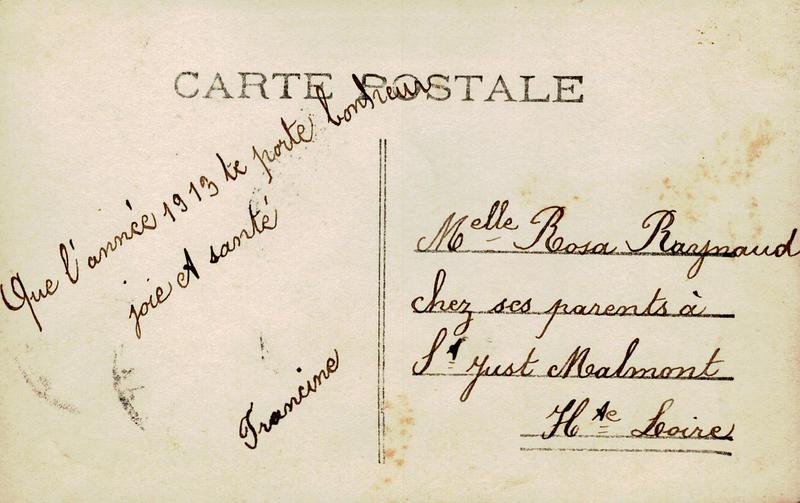 CARTE POSTALE
Que l'année 1913 te porte bonheur
joie et santé
Francine
Melle Rosa Raynaud
chez ses parents à
St Just Malmont
Hte Loire